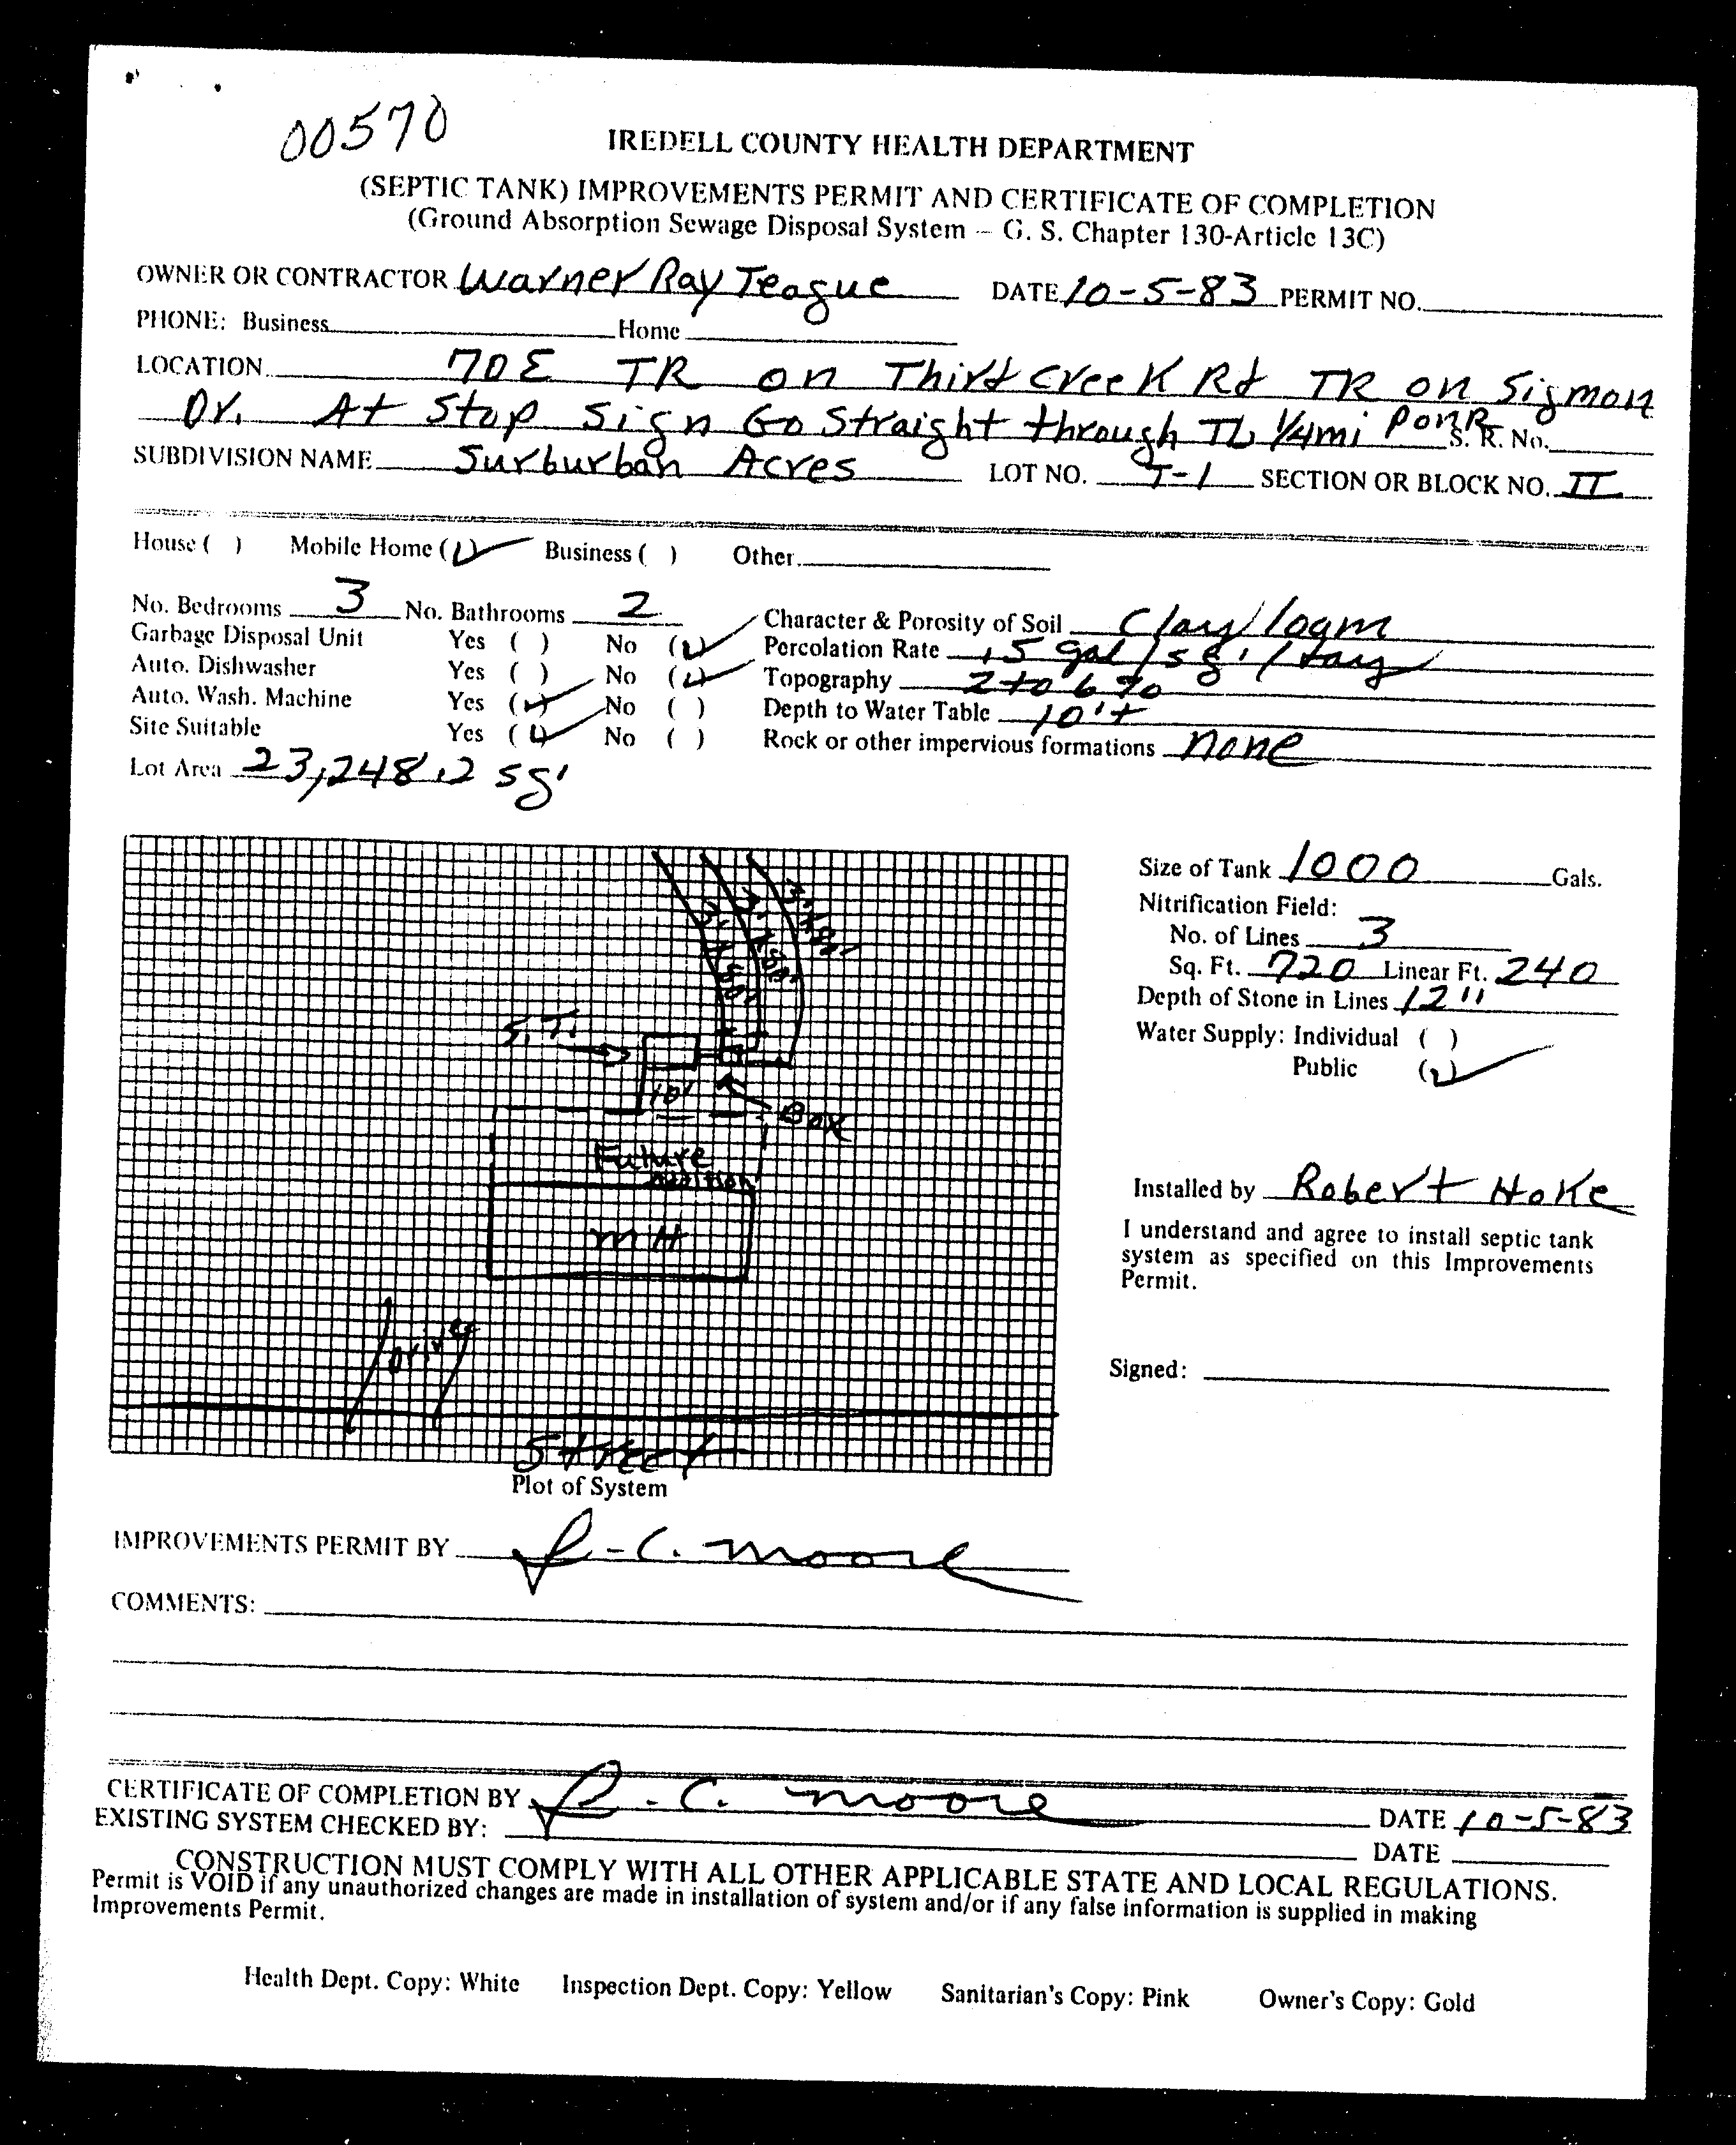 00570
IREDELL COUNTY HEALTH DEPARTMENT
(SEPTIC TANK) IMPROVEMENTS PERMIT AND CERTIFICATE OF COMPLETION
(Ground Absorption Sewage Disposal System — G. S. Chapter 130-Article 13C)
OWNER OR CONTRACTOR Warner Ray Teague DATE 10-5-83 PERMIT NO.
PHONE: Business Home
LOCATION 70E TR on Third Creek Rd TR on Sigmon
Dr. At Stop Sign Go Straight through TL 1/4 mi P on R S. R. No.
SUBDIVISION NAME Surburban Acres LOT NO. T-1 SECTION OR BLOCK NO. II
House ( ) Mobile Home (✓) Business ( ) Other
No. Bedrooms 3 No. Bathrooms 2 Character & Porosity of Soil Clay/loam
Garbage Disposal Unit Yes ( ) No (✓) Percolation Rate .5 gal/sq'/day
Auto. Dishwasher Yes ( ) No (✓) Topography 2 to 6 %
Auto. Wash. Machine Yes (✓) No ( ) Depth to Water Table 10'+
Site Suitable Yes (✓) No ( ) Rock or other impervious formations none
Lot Area 23,248.2 sq'
3'x80'
3'x80'
3'x80'
S.T.
10'
Box
Future
Addition
MH
Drive
Street
Plot of System
Size of Tank 1000 Gals.
Nitrification Field:
No. of Lines 3
Sq. Ft. 720 Linear Ft. 240
Depth of Stone in Lines 12"
Water Supply: Individual ( )
Public (✓)
Installed by Robert Hoke
I understand and agree to install septic tank
system as specified on this Improvements
Permit.
Signed:
IMPROVEMENTS PERMIT BY J. C. Moore
COMMENTS:
CERTIFICATE OF COMPLETION BY J. C. Moore DATE 10-5-83
EXISTING SYSTEM CHECKED BY: DATE
CONSTRUCTION MUST COMPLY WITH ALL OTHER APPLICABLE STATE AND LOCAL REGULATIONS.
Permit is VOID if any unauthorized changes are made in installation of system and/or if any false information is supplied in making
Improvements Permit.
Health Dept. Copy: White Inspection Dept. Copy: Yellow Sanitarian's Copy: Pink Owner's Copy: Gold